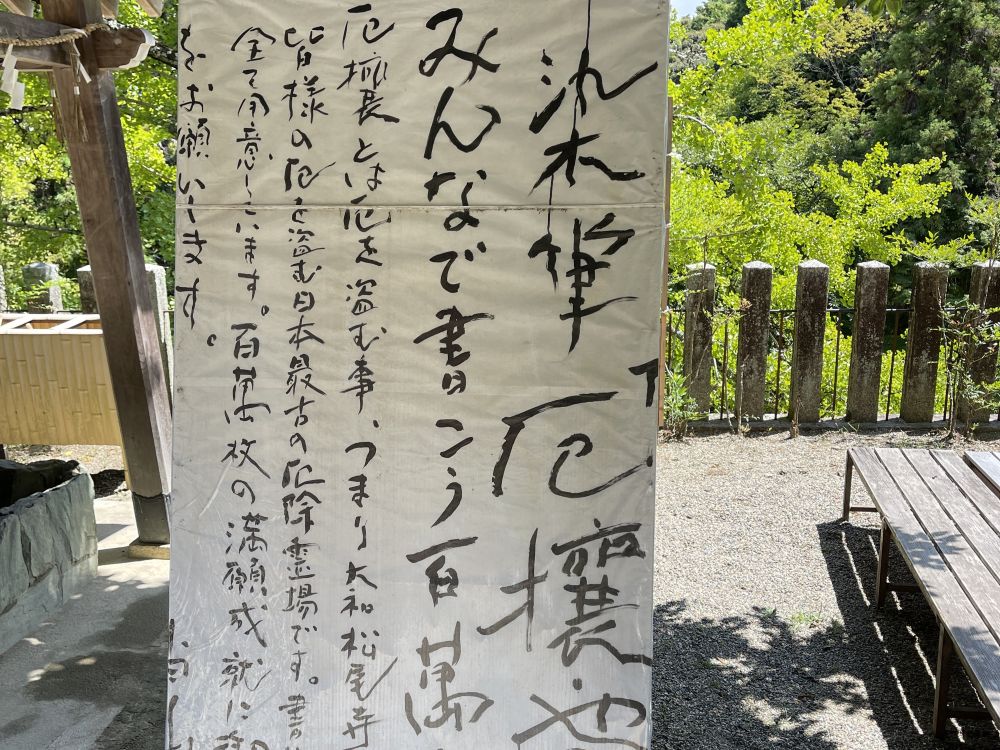 染筆「厄攘
みんなで書こう百萬
厄攘とは厄を盗む事、つまり大和松尾寺
皆様の厄を盗む日本最古の厄除霊場です。書
全て用意しています。百萬枚の満願成就に
をお願いします。